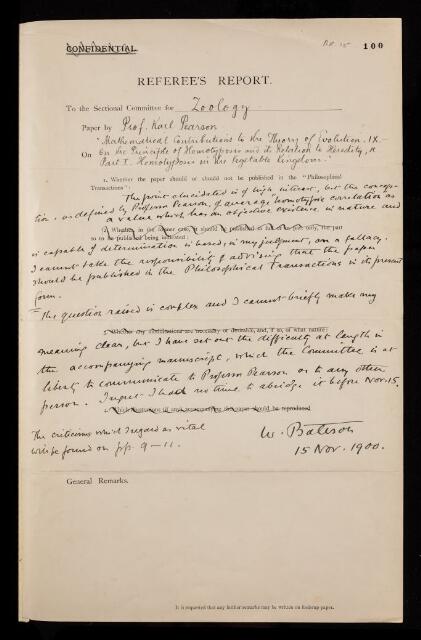 CONFIDENTIAL
RR. 15
100
REFEREE'S REPORT.
To the Sectional Committee for Zoology
Paper by Prof. Karl Pearson
"Mathematical Contributions to the Theory of Evolution. IX.—
On On the Principle of Homotyposis and its Relation to Heredity, &
Part I. Homotyposis in the Vegetable Kingdom."
1. Whether the paper should or should not be published in the "Philosophical
Transactions":
The point elucidated is of high interest, but the concep-
tion, as defined by Professor Pearson, of average homotypic correlation as
a value which has an objective existence in nature and
2. Whether, in the former case, it should be published in full or in part only,
to be published being indicated:
is capable of determination is based, in my judgment, on a fallacy.
I cannot take the responsibility of advising that the paper
should be published in the Philosophical Transactions in its present
form.
The question raised is complex and I cannot briefly make my
3. Whether any modifications are necessary or desirable, and, if so, of what nature:
meaning clear, but I have set out the difficulty at length in
the accompanying manuscript, which the Committee is at
liberty to communicate to Professor Pearson or to any other
person. I regret I had no time to abridge it before Nov. 15.
4. should be reproduced
The criticisms which I regard as vital
will be found on pp. 9–11.
W. Bateson
15 Nov. 1900.
General Remarks.
It is requested that any further remarks may be written on foolscap paper.